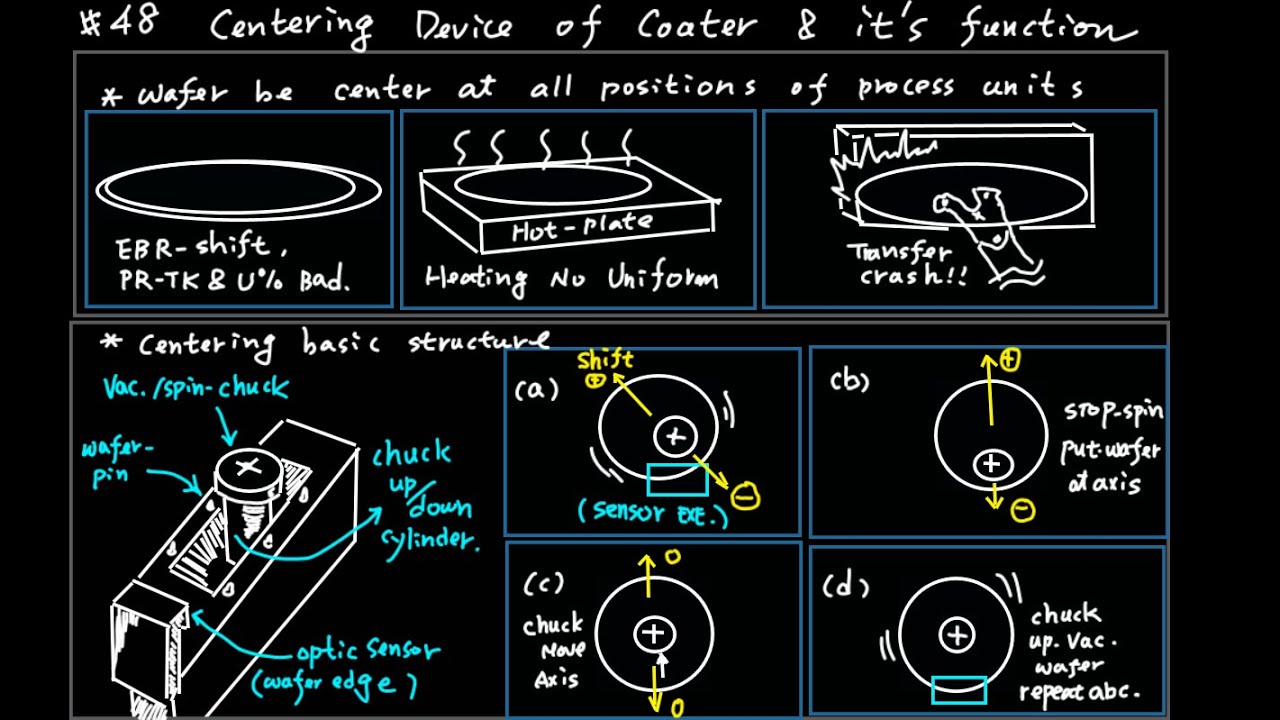 #48 Centering Device of Coater & it's function
* wafer be center at all positions of process units
EBR-shift,
PR-TK & U% Bad.
Hot-Plate
Heating No Uniform
Transfer
crash!!
* Centering basic structure
Vac./spin-chuck
wafer-
pin
chuck
up/
down
cylinder.
optic sensor
(wafer edge)
(a)
Shift
⊕
+
⊖
(sensor EXE.)
(b)
⊕
+
⊖
STOP-spin
put-wafer
at axis
(c)
0
+
0
chuck
Move
Axis
(d)
+
chuck
up. Vac.
wafer
repeat abc.